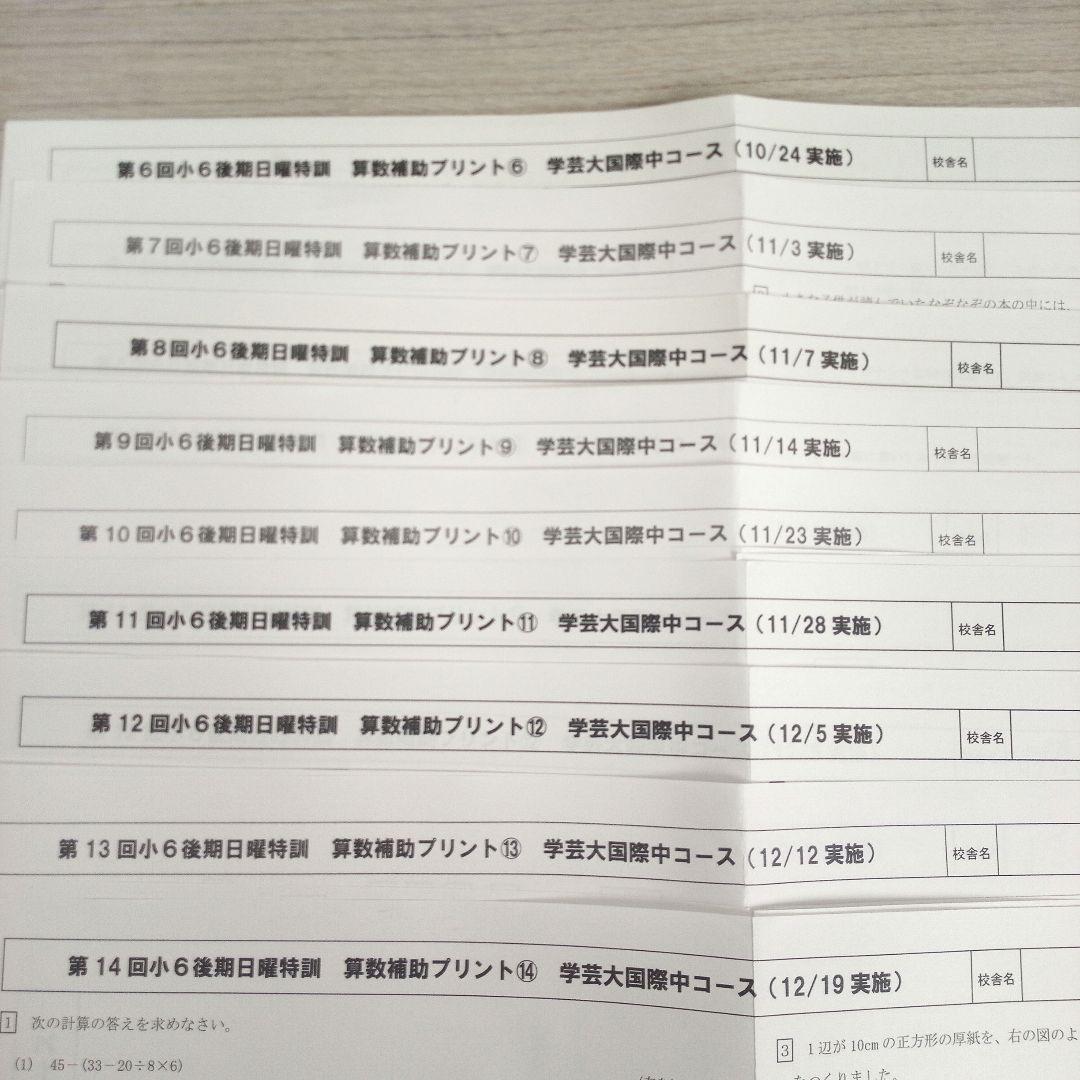 第6回小6後期日曜特訓　算数補助プリント⑥　学芸大国際中コース（10/24 実施）　校舎名
第7回小6後期日曜特訓　算数補助プリント⑦　学芸大国際中コース（11/3 実施）　校舎名
の本の中には、
第8回小6後期日曜特訓　算数補助プリント⑧　学芸大国際中コース（11/7 実施）　校舎名
第9回小6後期日曜特訓　算数補助プリント⑨　学芸大国際中コース（11/14 実施）　校舎名
第10回小6後期日曜特訓　算数補助プリント⑩　学芸大国際中コース（11/23 実施）　校舎名
第11回小6後期日曜特訓　算数補助プリント⑪　学芸大国際中コース（11/28 実施）　校舎名
第12回小6後期日曜特訓　算数補助プリント⑫　学芸大国際中コース（12/5 実施）　校舎名
第13回小6後期日曜特訓　算数補助プリント⑬　学芸大国際中コース（12/12 実施）　校舎名
第14回小6後期日曜特訓　算数補助プリント⑭　学芸大国際中コース（12/19 実施）　校舎名
1　次の計算の答えを求めなさい。
(1)　45－(33－20÷8×6)
3　1辺が10cmの正方形の厚紙を、右の図のよ
つくりました。